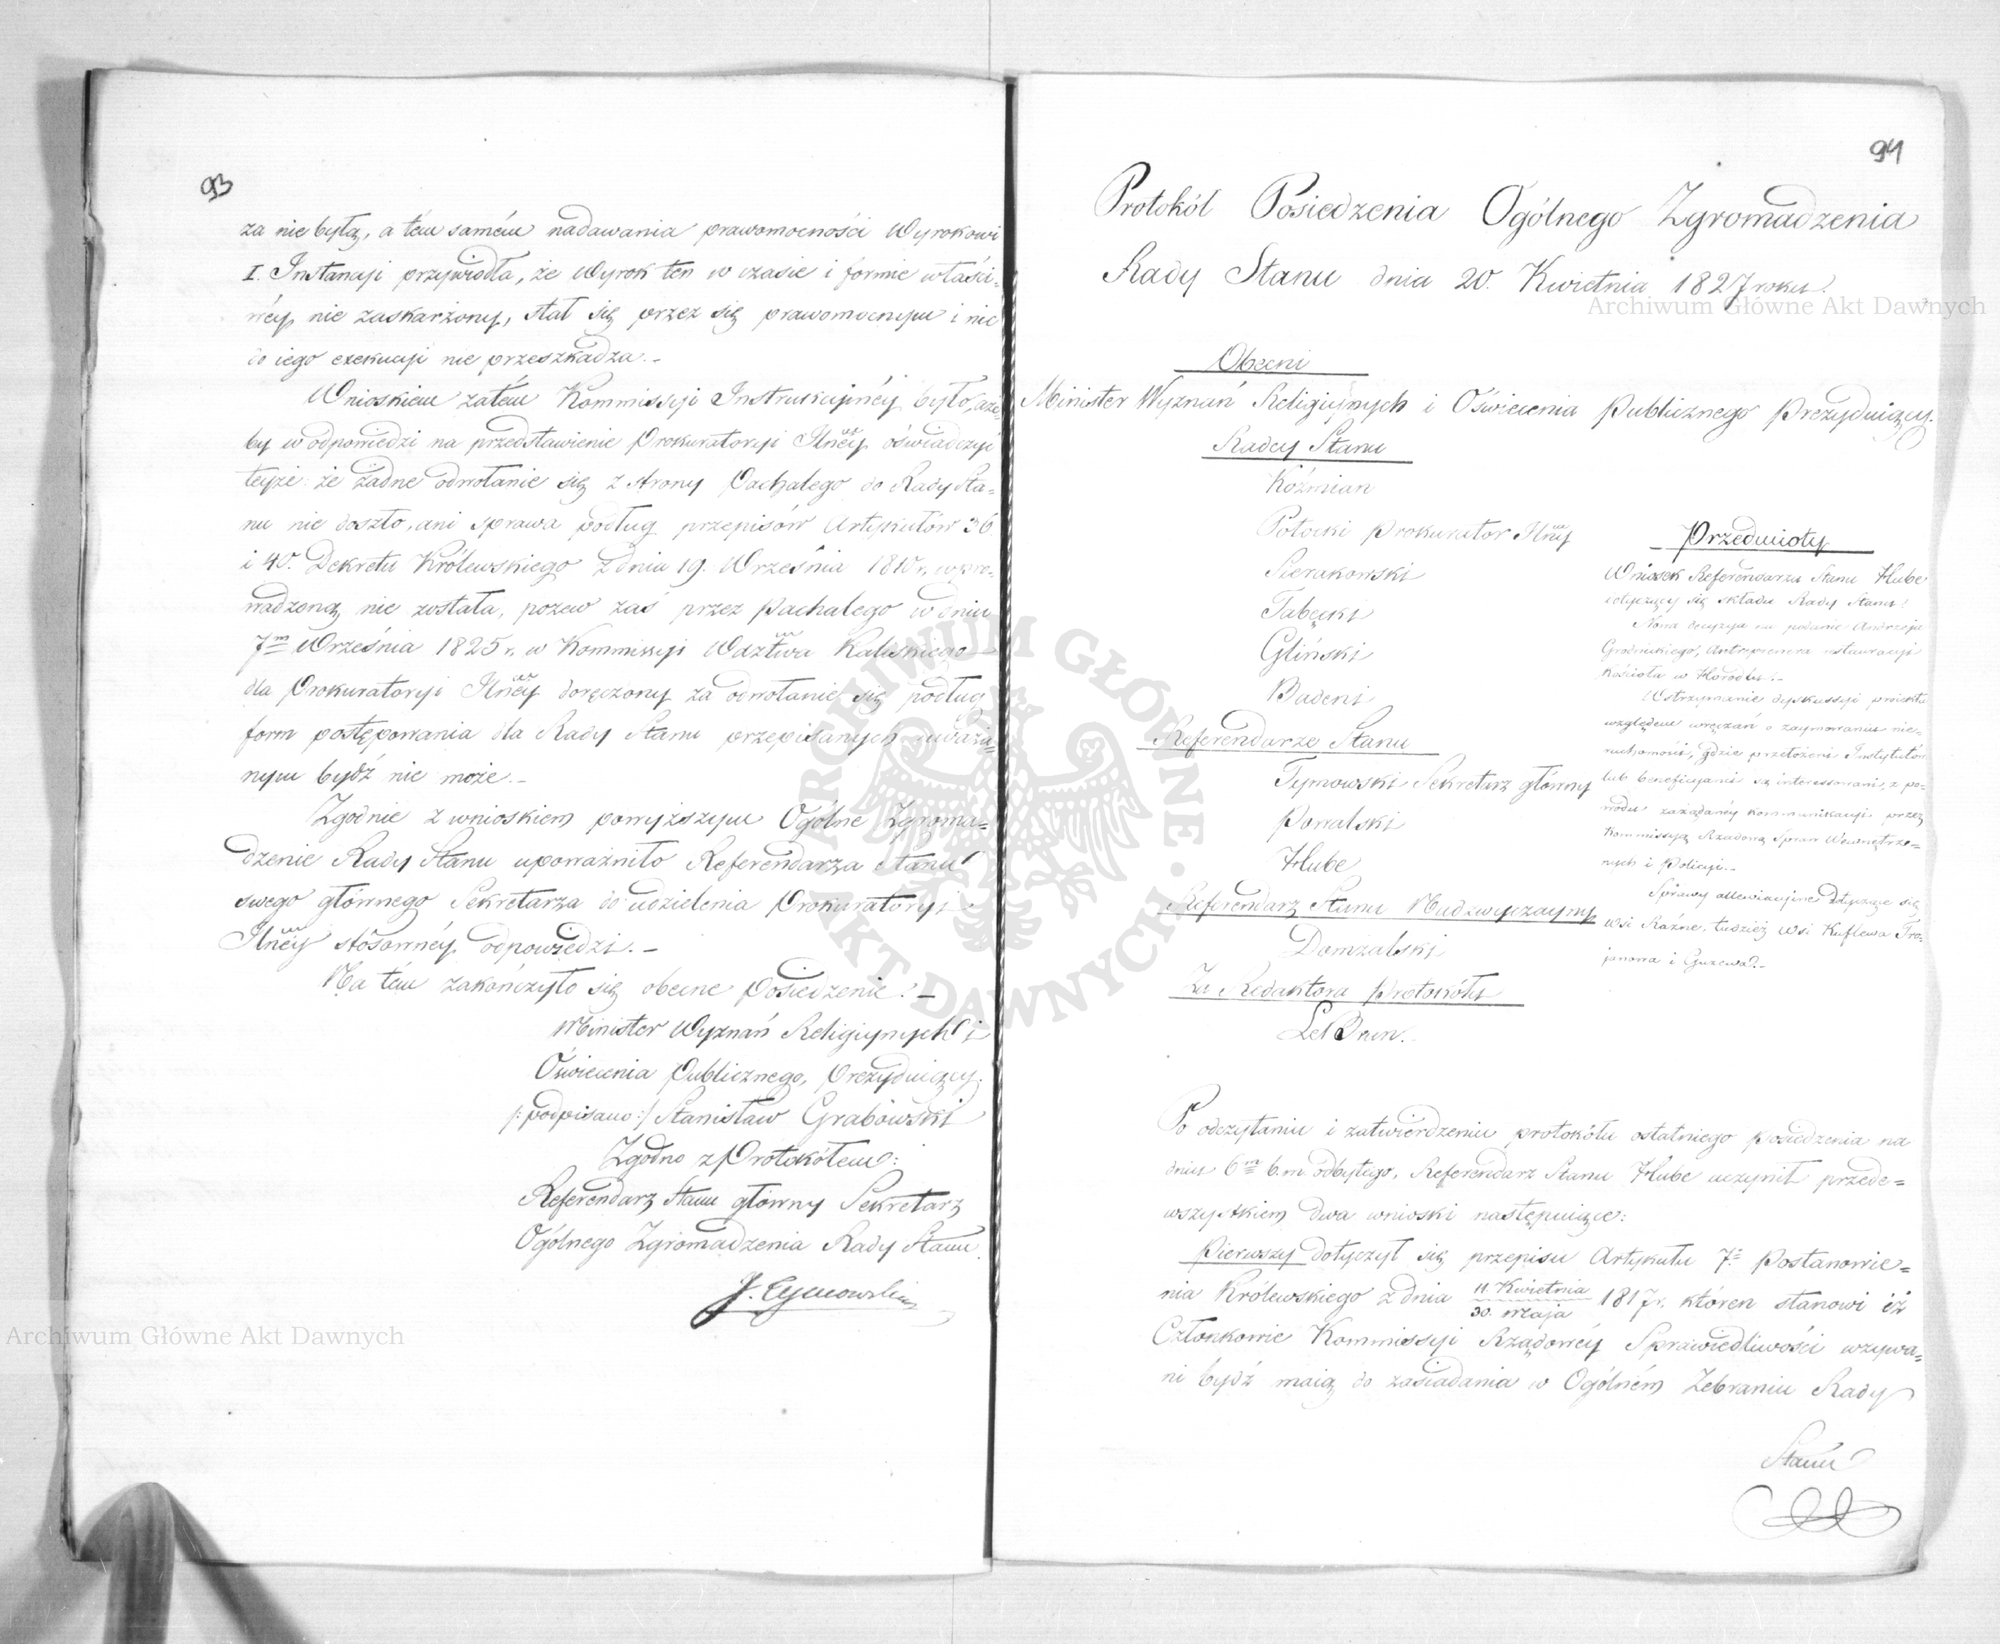 93
za nie byłą, a tém samém nadawania prawomocności Wyrokowi
I. Instancyi przywiodła, że Wyrok ten w czasie i formie właści-
wéy nie zaskarżony, stał się przez się prawomocnym i nic
do iego exekucyi nie przeszkadza.-
Wnioskiem zatém Kommissyi Instrukcyinéy było, aże
by w odpowiedzi na przedstawienie Prokuratoryi Jlnéy oświadczyć
teyże: że żadne odwołanie się z strony Pachalego do Rady Sta=
nu nie doszło, ani sprawa podług przepisów Artykułów 36
i 40. Dekretu Królewskiego z dnia 19. Września 1810 r. wpro-
wadzoną nie została, pozew zaś przez Pachalego w dniu
7m Września 1825 r. w Kommissyi Wdztwa Kaliskiego
dla Prokuratoryi Jlnéy doręczony za odwołanie się podług
form postępowania dla Rady Stanu przepisanych uważa-
nym bydź nie może.-
Zgodnie z wnioskiem powyższym Ogólne Zgroma=
dzenie Rady Stanu upoważniło Referendarza Stanu
swego głównego Sekretarza do udzielenia Prokuratoryi
Jlnéy stósownéy odpowiedzi.-
Na tém zakończyło się obecne Posiedzenie.-
Minister Wyznań Religiynych i
Oświecenia Publicznego, Prezyduiący.
/:podpisano:/ Stanisław Grabowski
Zgodno z Protokółem:
Referendarz Stanu główny Sekretarz
Ogólnego Zgromadzenia Rady Stanu.
J. Tymowski
94
Protokół Posiedzenia Ogólnego Zgromadzenia
Rady Stanu dnia 20. Kwietnia 1827 roku.
Obecni
Minister Wyznań Religiynych i Oświecenia Publicznego Prezyduiący.
Radcy Stanu
Koźmian
Potocki Prokurator Jlny
Sierakowski
Tabęcki
Gliński
Badeni
Referendarze Stanu
Tymowski Sekretarz główny
Powalski
Hube
Referendarz Stanu Nadzwyczayny
Domżalski
Za Redaktora Protokółu
Le Brun.
Przedmioty
Wniosek Referendarza Stanu Hube
dotyczący się składu Rady Stanu.
Nowa decyzya na podanie Andrzeja
Grodnickiego, Antreprenera restauracyi
Kościoła w Horodle.-
Wstrzymanie dyskussyi proiektu
względem wręczań o zaymowaniu nie-
ruchomości, gdzie przełożeni Instytutów
lub beneficyanci są interessowani, z po-
wodu zażądanéy kommunikacyi przez
Kommissyą Rządową Spraw Wewnętrz-
nych i Policyi.-
Sprawy allewiacyine dotyczące się
wsi Raźne, tudzież wsi Kuflewa Tro-
janowa i Guzewa.-
Po odczytaniu i zatwierdzeniu protokółu ostatniego posiedzenia na
dniu 6m b.m odbytego, Referendarz Stanu Hube uczynił przede=
wszystkiem dwa wnioski następuiące:
Pierwszy dotyczył się przepisu Artykułu 7. Postanowie=
nia Królewskiego z dnia 11. Kwietnia / 30. Maja 1817 r. któren stanowi iż
Członkowie Kommissyi Rządowéy Sprawiedliwości wzywa=
ni bydź maią do zasiadania w Ogólném Zebraniu Rady
Stanu
Archiwum Główne Akt Dawnych
Archiwum Główne Akt Dawnych
ARCHIWUM GŁÓWNE AKT DAWNYCH